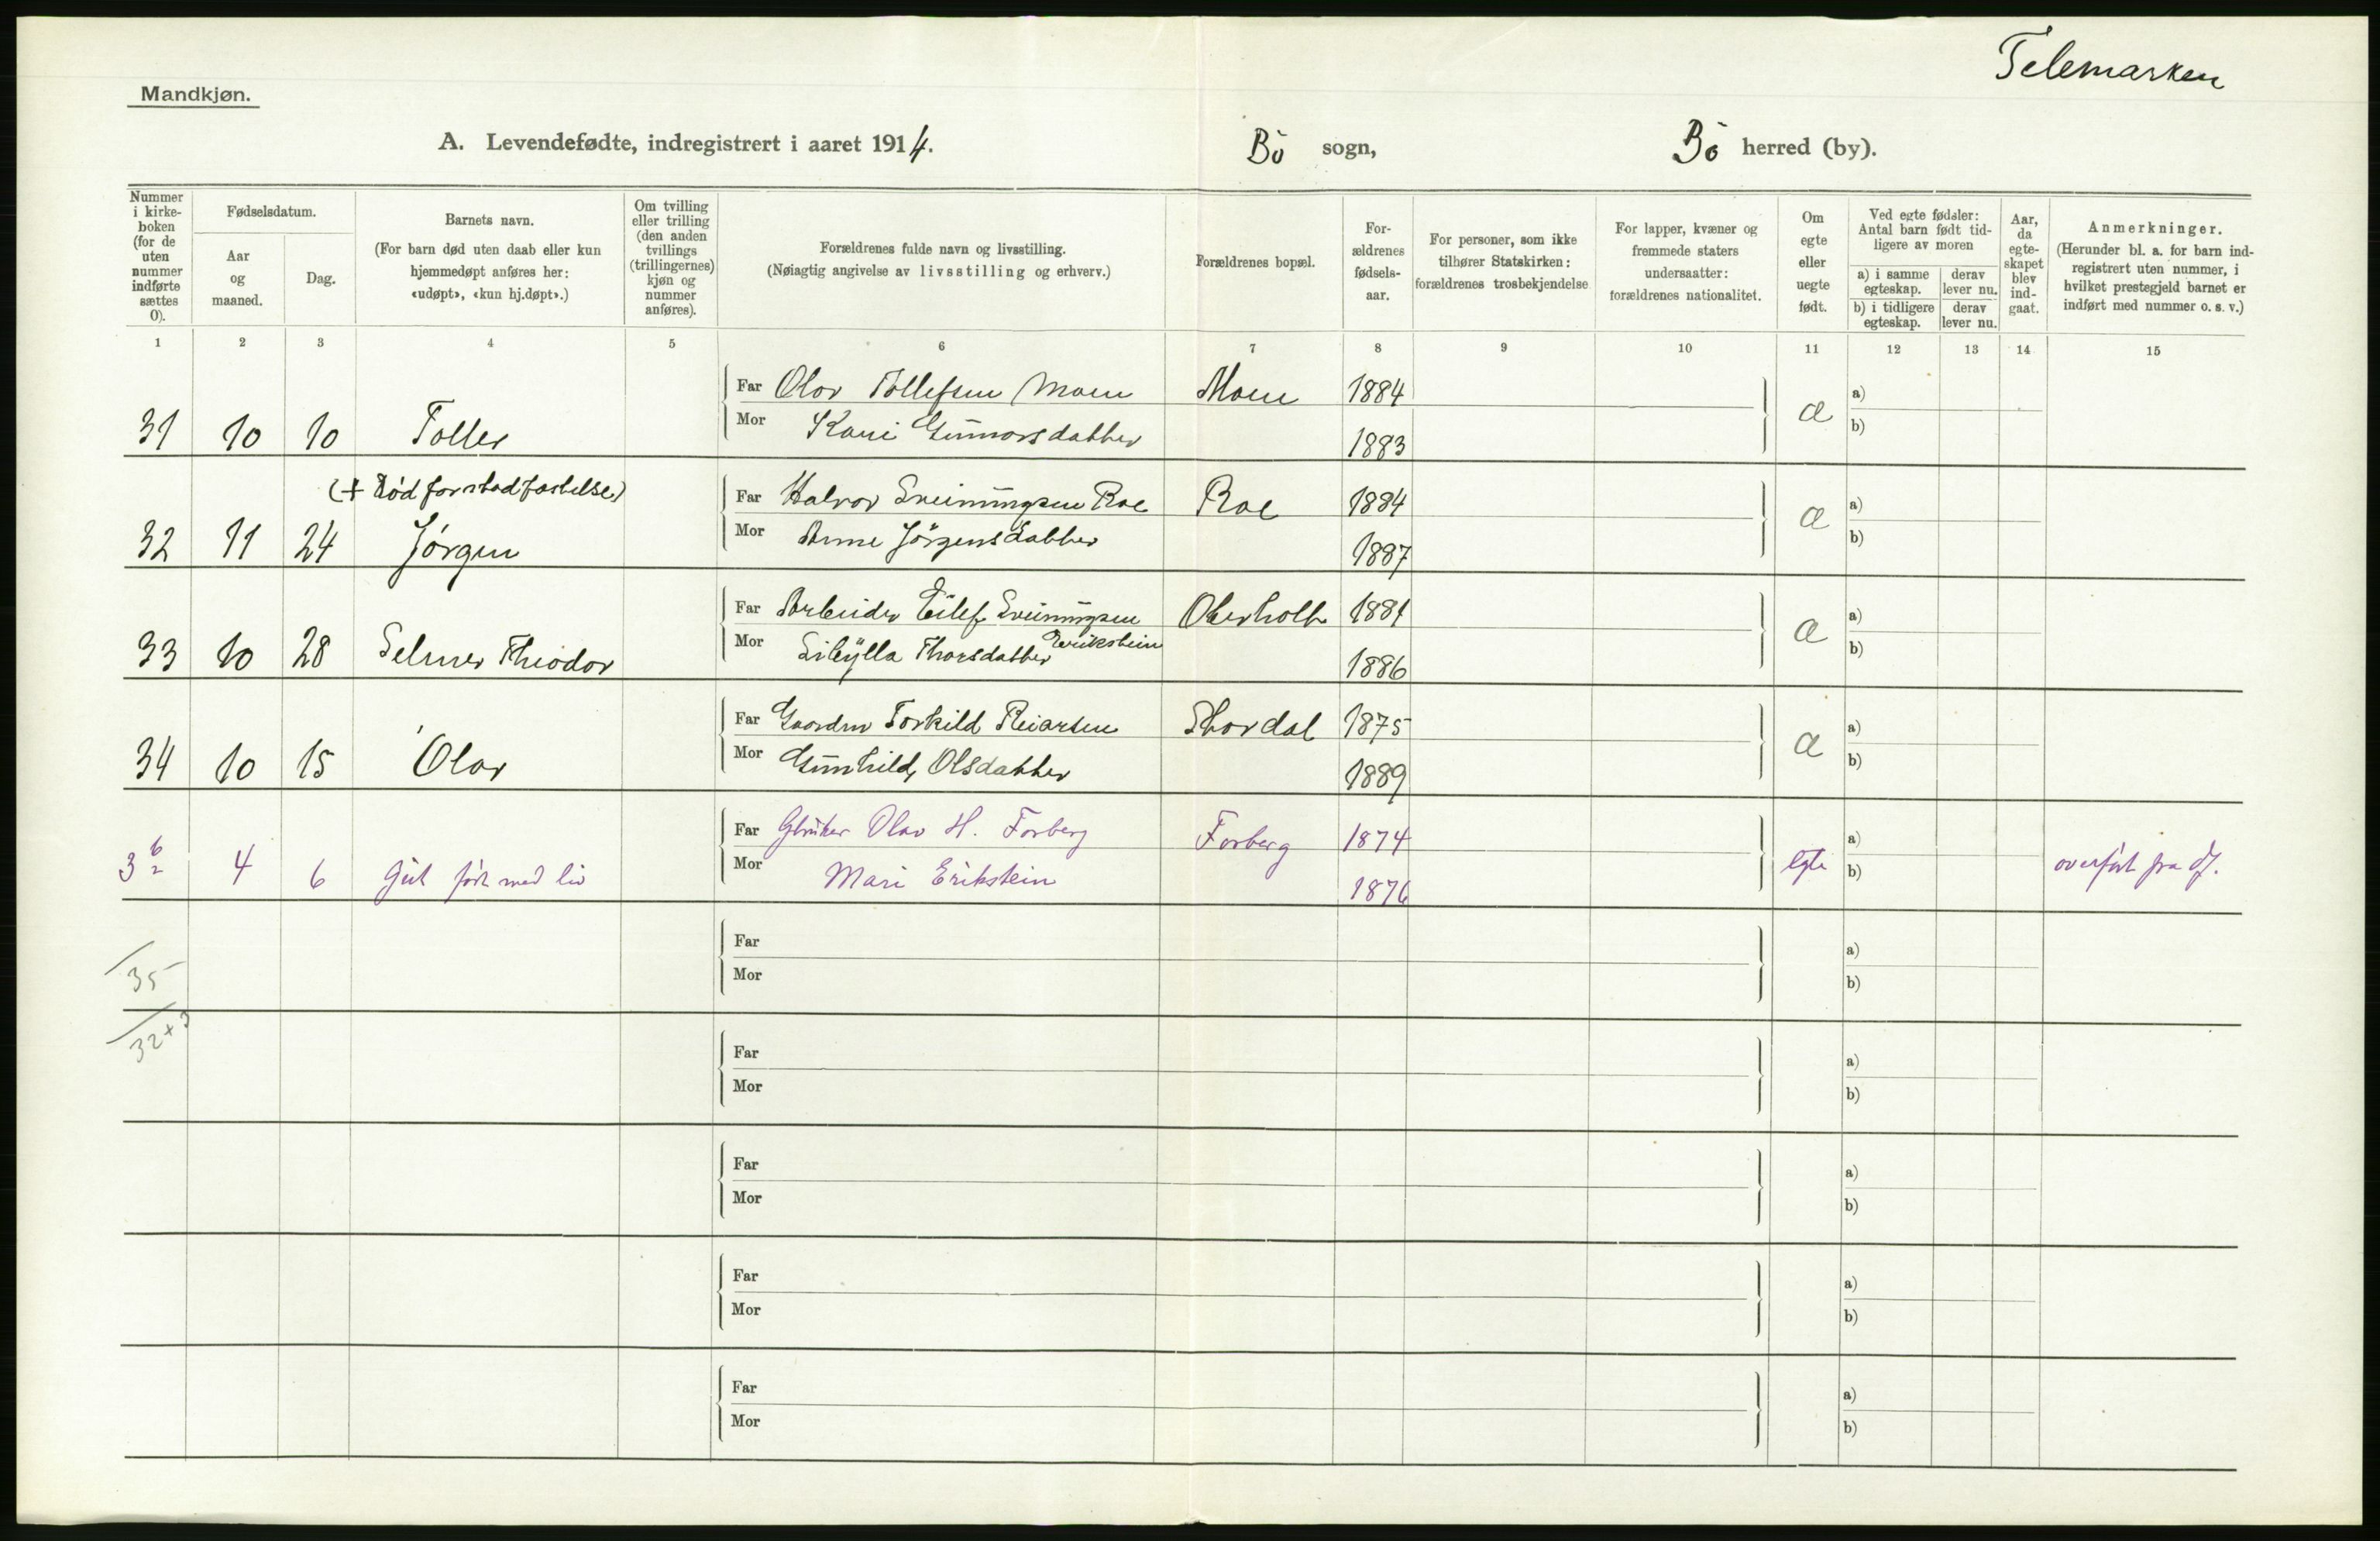 Telemarken
Mandkjøn.
A. Levendefødte, indregistrert i aaret 1914.
Bö sogn,
Bö herred (by).
Nummer i kirke-boken (for de uten nummer indførte sættes 0).
Fødselsdatum.
Aar og maaned.
Dag.
Barnets navn.
(For barn død uten daab eller kun hjemmedøpt anføres her: «udøpt», «kun hj.døpt».)
Om tvilling eller trilling (den anden tvillings (trillingernes) kjøn og nummer anføres).
Forældrenes fulde navn og livsstilling.
(Nøiagtig angivelse av livsstilling og erhverv.)
Forældrenes bopæl.
For-ældrenes fødsels-aar.
For personer, som ikke tilhører Statskirken: forældrenes trosbekjendelse
For lapper, kvæner og fremmede staters undersaatter: forældrenes nationalitet.
Om egte eller uegte født.
Ved egte fødsler: Antal barn født tid-ligere av moren
a) i samme egteskap.
derav lever nu.
b) i tidligere egteskap.
derav lever nu.
Aar, da egte-skapet blev ind-gaat.
Anmerkninger.
(Herunder bl. a. for barn ind-registrert uten nummer, i hvilket prestegjeld barnet er indført med nummer o. s. v.)
1 2 3 4 5 6 7 8 9 10 11 12 13 14 15
Far Olav Tollefsen Moen Moen 1884 a)
31 10 10 Tollef Mor Kari Gunnarsdatter 1883 a b)
(+ Död för stadfæstelse)
Far Halvor Sveinungsen Roe Roe 1884 a)
32 11 24 Jörgen Mor Anne Jörgensdatter 1887 a b)
Far Arbeider Eilef Sveinungsen Oterholt 1881 a)
33 10 28 Selmer Theodor Mor Sibÿlla Thorsdatter Erikstein 1886 a b)
Far Gaardm Torkild Reiarsen Stordal 1875 a)
34 10 15 Olav Mor Gunhild Olsdatter 1889 a b)
Far Gbruker Olav H. Forberg Forberg 1874 a)
3 4 6 Gut født med liv Mor Mari Erikstein 1876 egte b) overført fra df.
Far a)
35 Mor b)
32+3
Far a)
Mor b)
Far a)
Mor b)
Far a)
Mor b)
Far a)
Mor b)